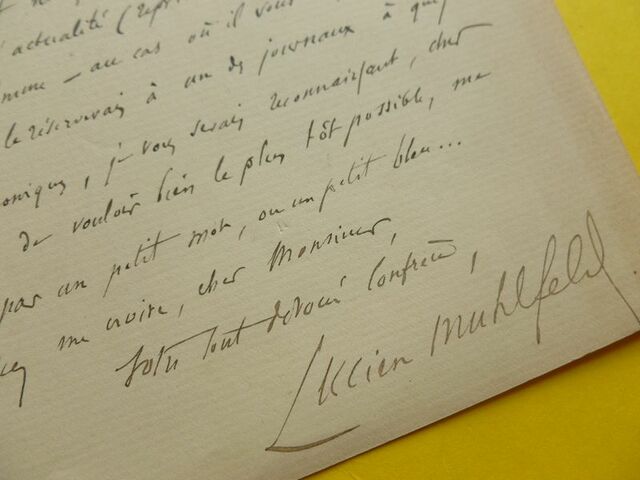 actualité (repr
— au cas où il vous
le réserverais à un des journaux à qui
, je vous serais reconnaissant, cher
de vouloir bien le plus tôt possible, me
par un petit mot, ou un petit bleu...
me croire, cher Monsieur,
Votre tout dévoué confrère,
Lucien Muhlfeld.